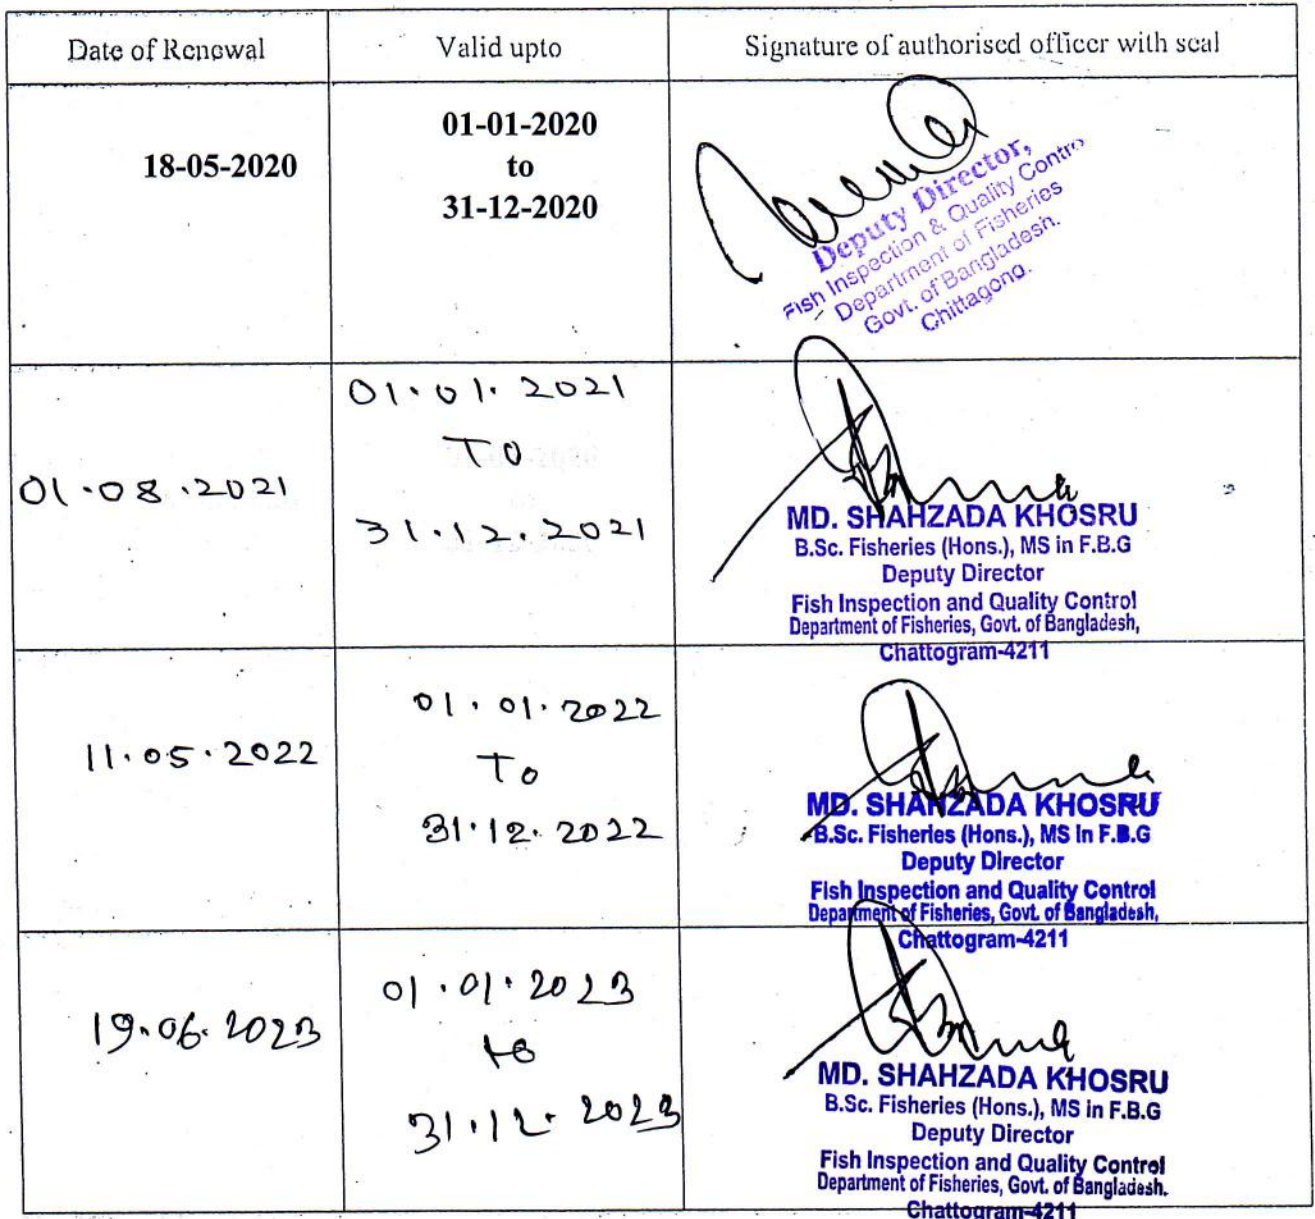 Date of Renewal Valid upto Signature of authorised officer with seal
18-05-2020
01-01-2020
to
31-12-2020
Deputy Director,
Fish Inspection & Quality Contro
Department of Fisheries
Govt. of Bangladesh.
Chittagong.
01.08.2021
01.01.2021
TO
31.12.2021
MD. SHAHZADA KHOSRU
B.Sc. Fisheries (Hons.), MS in F.B.G
Deputy Director
Fish Inspection and Quality Control
Department of Fisheries, Govt. of Bangladesh,
Chattogram-4211
11.05.2022
01.01.2022
To
31.12.2022
MD. SHAHZADA KHOSRU
B.Sc. Fisheries (Hons.), MS in F.B.G
Deputy Director
Fish Inspection and Quality Control
Department of Fisheries, Govt. of Bangladesh,
Chattogram-4211
19.06.2023
01.01.2023
to
31.12.2023
MD. SHAHZADA KHOSRU
B.Sc. Fisheries (Hons.), MS in F.B.G
Deputy Director
Fish Inspection and Quality Control
Department of Fisheries, Govt. of Bangladesh.
Chattogram-4211